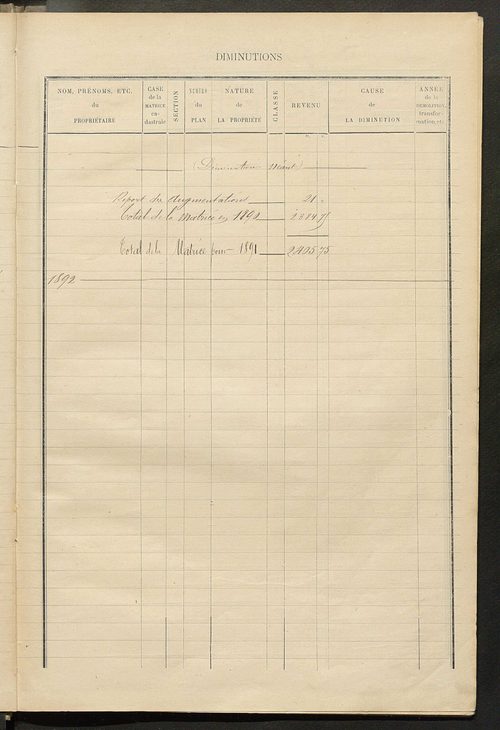 DIMINUTIONS
NOM, PRÉNOMS, ETC. du PROPRIÉTAIRE
CASE de la MATRICE cadastrale
SECTION
NUMÉRO du PLAN
NATURE de LA PROPRIÉTÉ
CLASSE
REVENU
CAUSE de LA DIMINUTION
ANNÉE de la DÉMOLITION, transformation, etc.
(Diminution néant)
Report des augmentations 21 "
Total de la Matrice en
Total de la Matrice pour 1891
1892